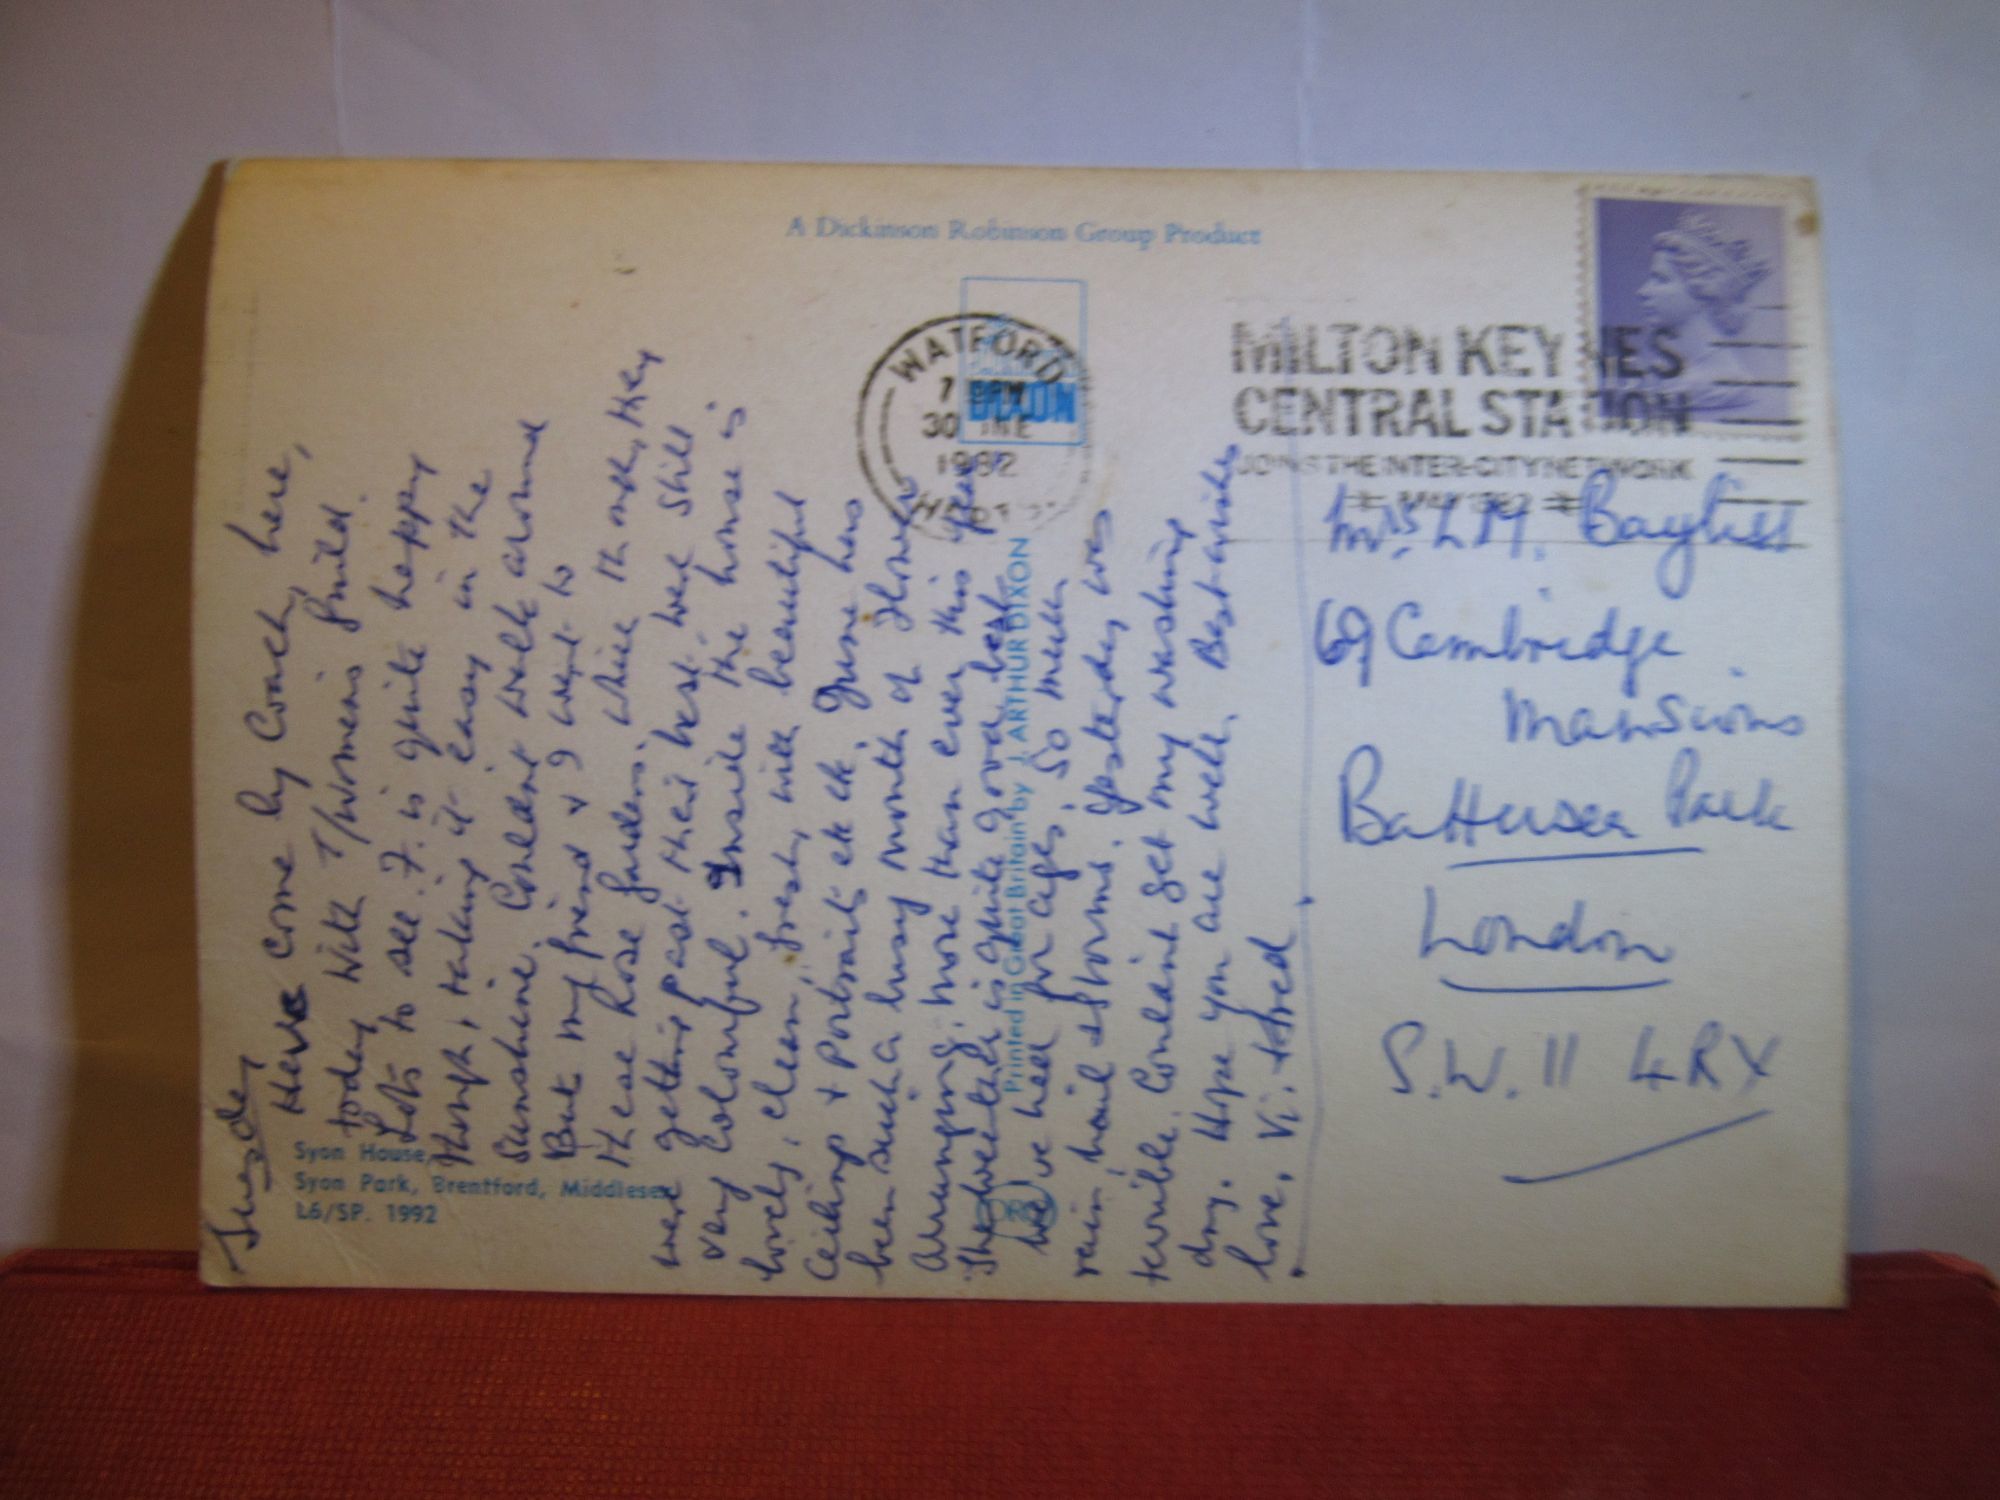 A Dickinson Robinson Group Product
WATFORD
7 PM
30 JNE
1982
DIXON
MILTON KEYNES
CENTRAL STATION
JOINS THE INTER-CITY NETWORK
MAY 1982
Syon House,
Syon Park, Brentford, Middlesex
L6/SP. 1992
Printed in Great Britain by J. ARTHUR DIXON
Tuesday
Have come by Coach, here,
today with T/Womens Guild.
Lots to see. F. is quite happy
though, taking it easy in the
Sunshine. Couldnt walk around
But my friend & I went to
these Rose gardens, while th
were getting past their best were still
very Colourful. Inside the house is
lovely, clean, fresh, with beautiful
Ceilings & Portraits etc etc. June has
been such a busy month of Flower
Arranging, more than ever this year
The weather is quite good, best
we've had for ages, so much
rain, hail storms. Yesterday was
terrible. Couldnt get my washing
dry. Hope you are well. Best wishes
love, Vi. & Fred
Mrs. L M. Bayliss
69 Cambridge
Mansions
Battersea Park
London
S.W. 11 4RX